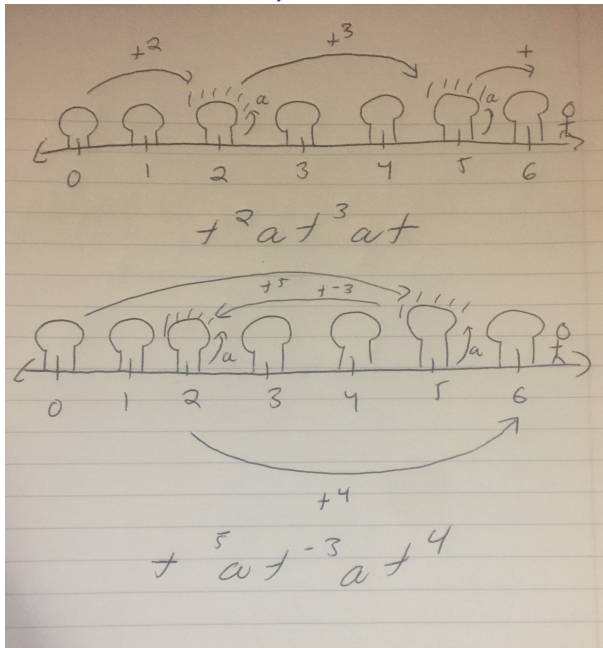 t² t³ t
a a
0 1 2 3 4 5 6
t²at³at
t⁵ t⁻³
a a
0 1 2 3 4 5 6
t⁴
t⁵at⁻³at⁴